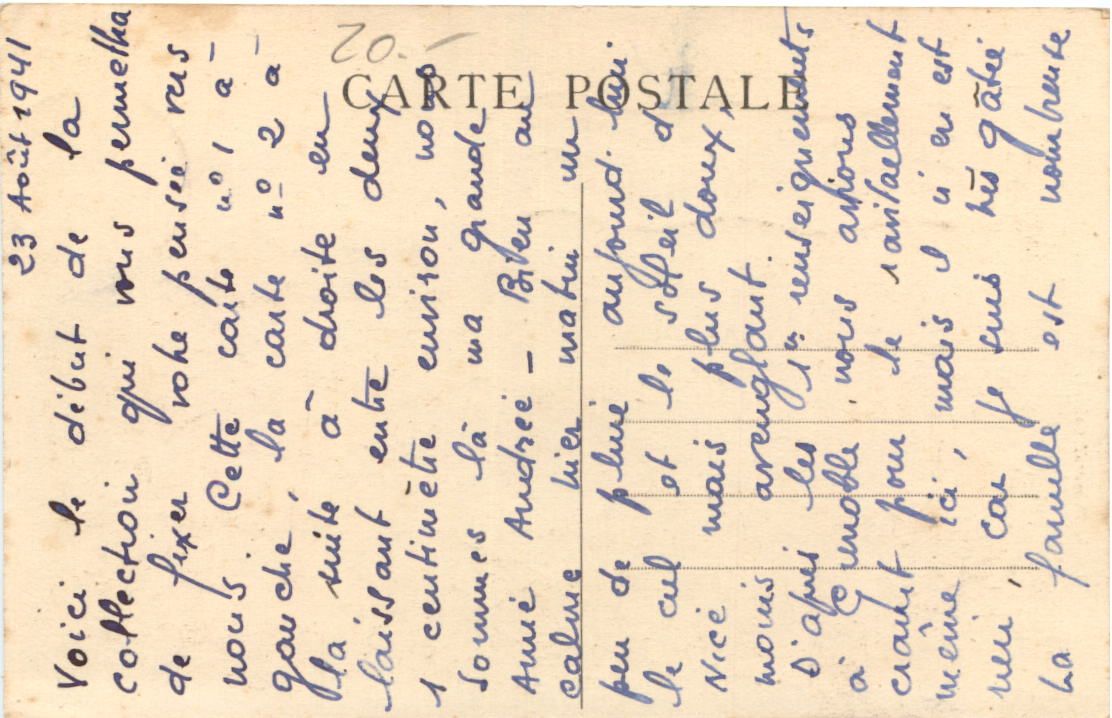 CARTE POSTALE
20.-
23 Août 1941
Voici le début de la
collection qui vous permettra
de fixer votre pensée vers
nous. Cette carte n° 1 à
gauche, la carte n° 2 à
la suite à droite en
laissant entre les deux
1 centimètre environ, nous
sommes là ma grande
Amie Andrée - Bien au
calme hier matin un
peu de pluie aujourd'hui
le ciel et le soleil d
Nice mais plus doux,
moins aveuglant.
D'après les 1rs renseignements
à Grenoble nous avions
craint pour le ravitaillement
même ici, mais il n'en est
rien, car je suis très gâtée
La famille est nombreuse